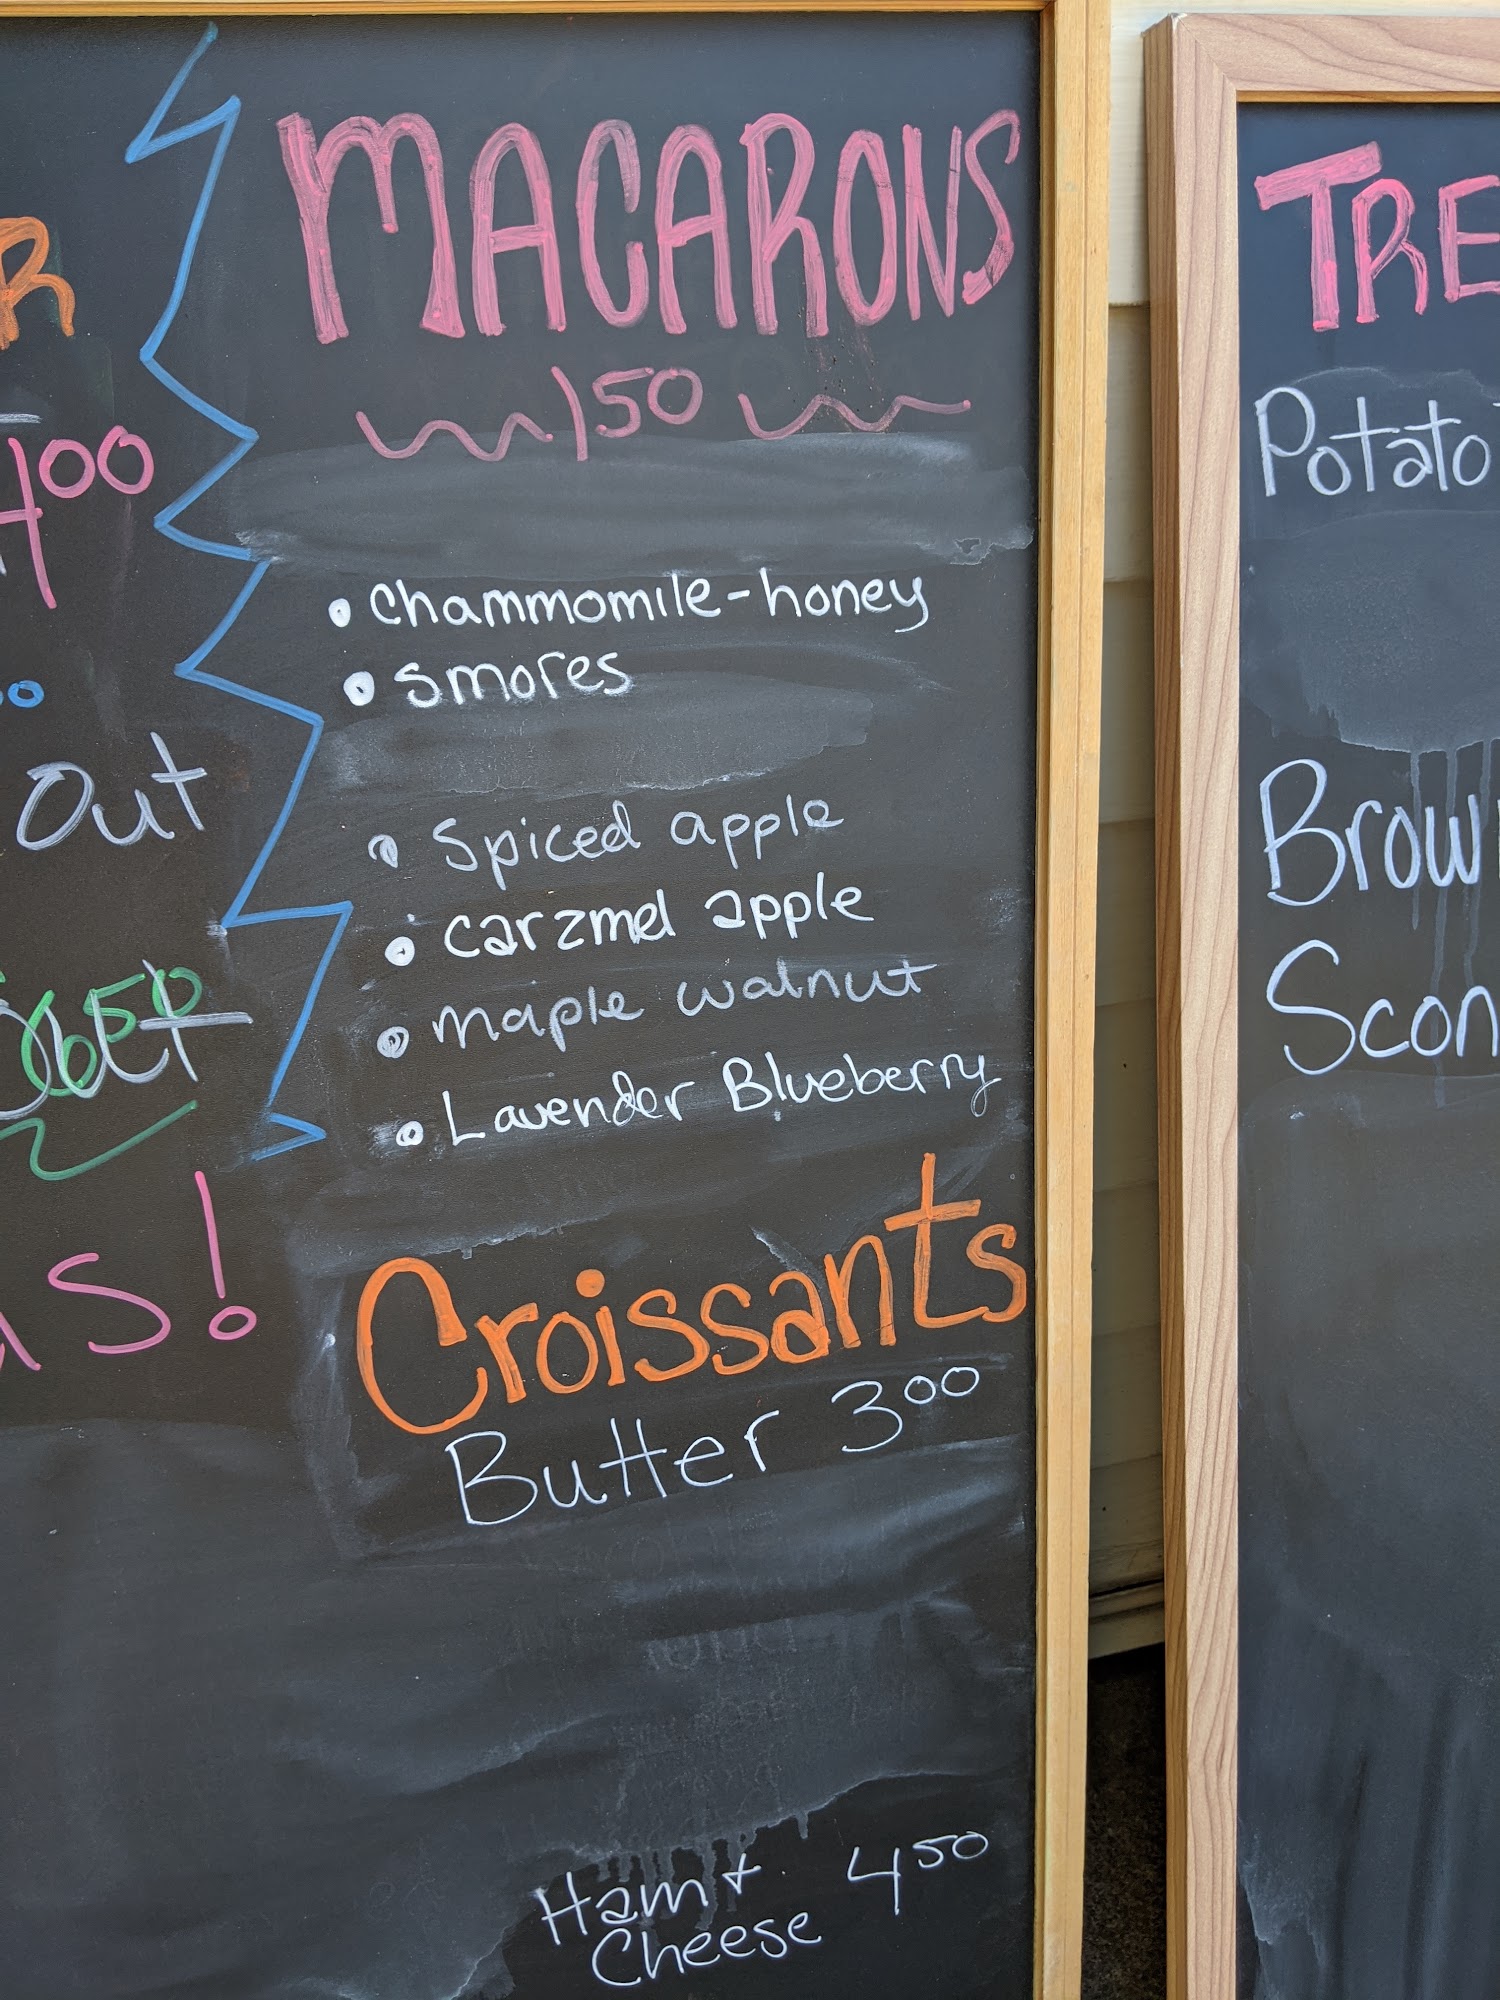 MACARONS
150
• Chammomile-honey
• Smores
• Spiced apple
• Caramel apple
• maple walnut
• Lavender Blueberry
Croissants
Butter 3 00
Ham +
Cheese 4 50
400
Out
6 50
S!
Potato
Scon